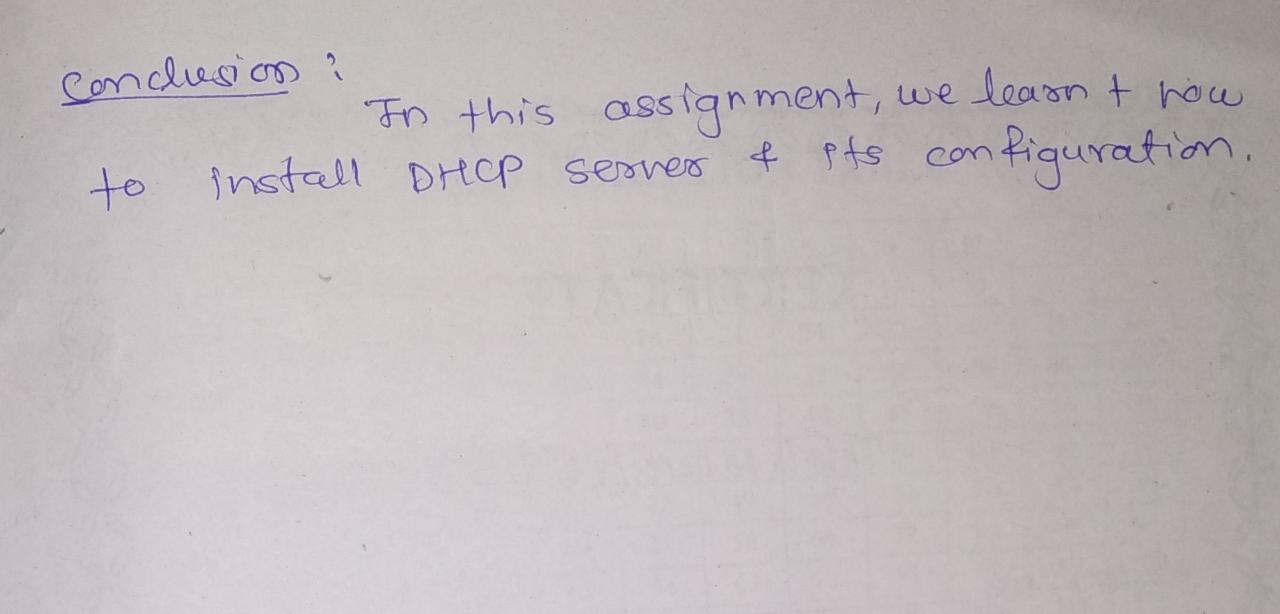 Conclusion :
In this assignment, we learnt how
to install DHCP server & its configuration.